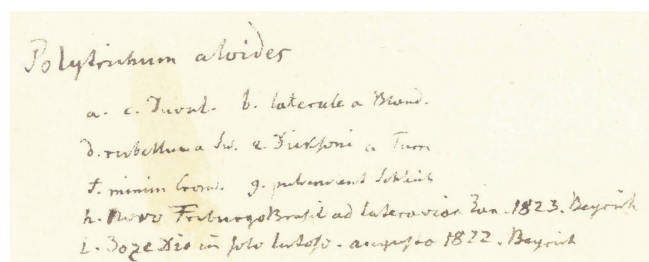 Polytrichum aloides
a. c. Duval. b. laterale a Brond.
d. rubellum a Sw. e. Dicksoni a Turn
f. minim Crom. g. Schleich
h. Novo Friburgo Brasil ad latera Jan. 1823. Beyrich
i. in solo lutoso. augusto 1822. Beyrich